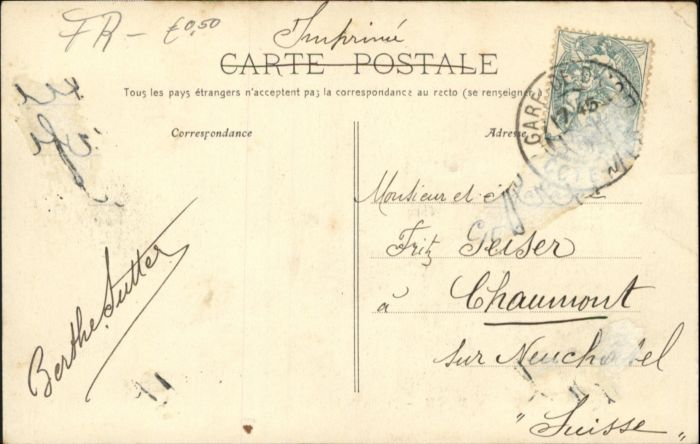 FR - £0,50
Imprimé
CARTE POSTALE
Tous les pays étrangers n'acceptent pas la correspondance au recto (se renseigner
Correspondance
Adresse
GARE DE
17 45
COTE
Monsieur et
Fritz Geiser
à Chaumont
sur Neuchatel
"Suisse"
Berthe Sutter